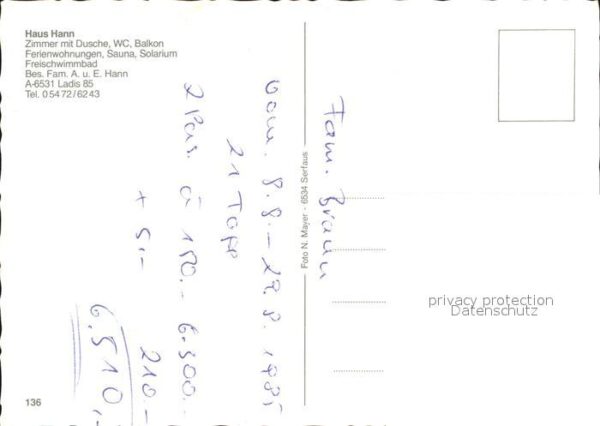 Haus Hann
Zimmer mit Dusche, WC, Balkon
Ferienwohnungen, Sauna, Solarium
Freischwimmbad
Bes. Fam. A. u. E. Hann
A-6531 Ladis 85
Tel. 0 54 72 / 62 43
Fam. Braun
vom. 8.8. – 29.8. 1985
21 Tage
2 Pers. à 150.– 6.300.–
+ 5,– 210.–
6.510,–
Foto N. Mayer - 6534 Serfaus
privacy protection
Datenschutz
136